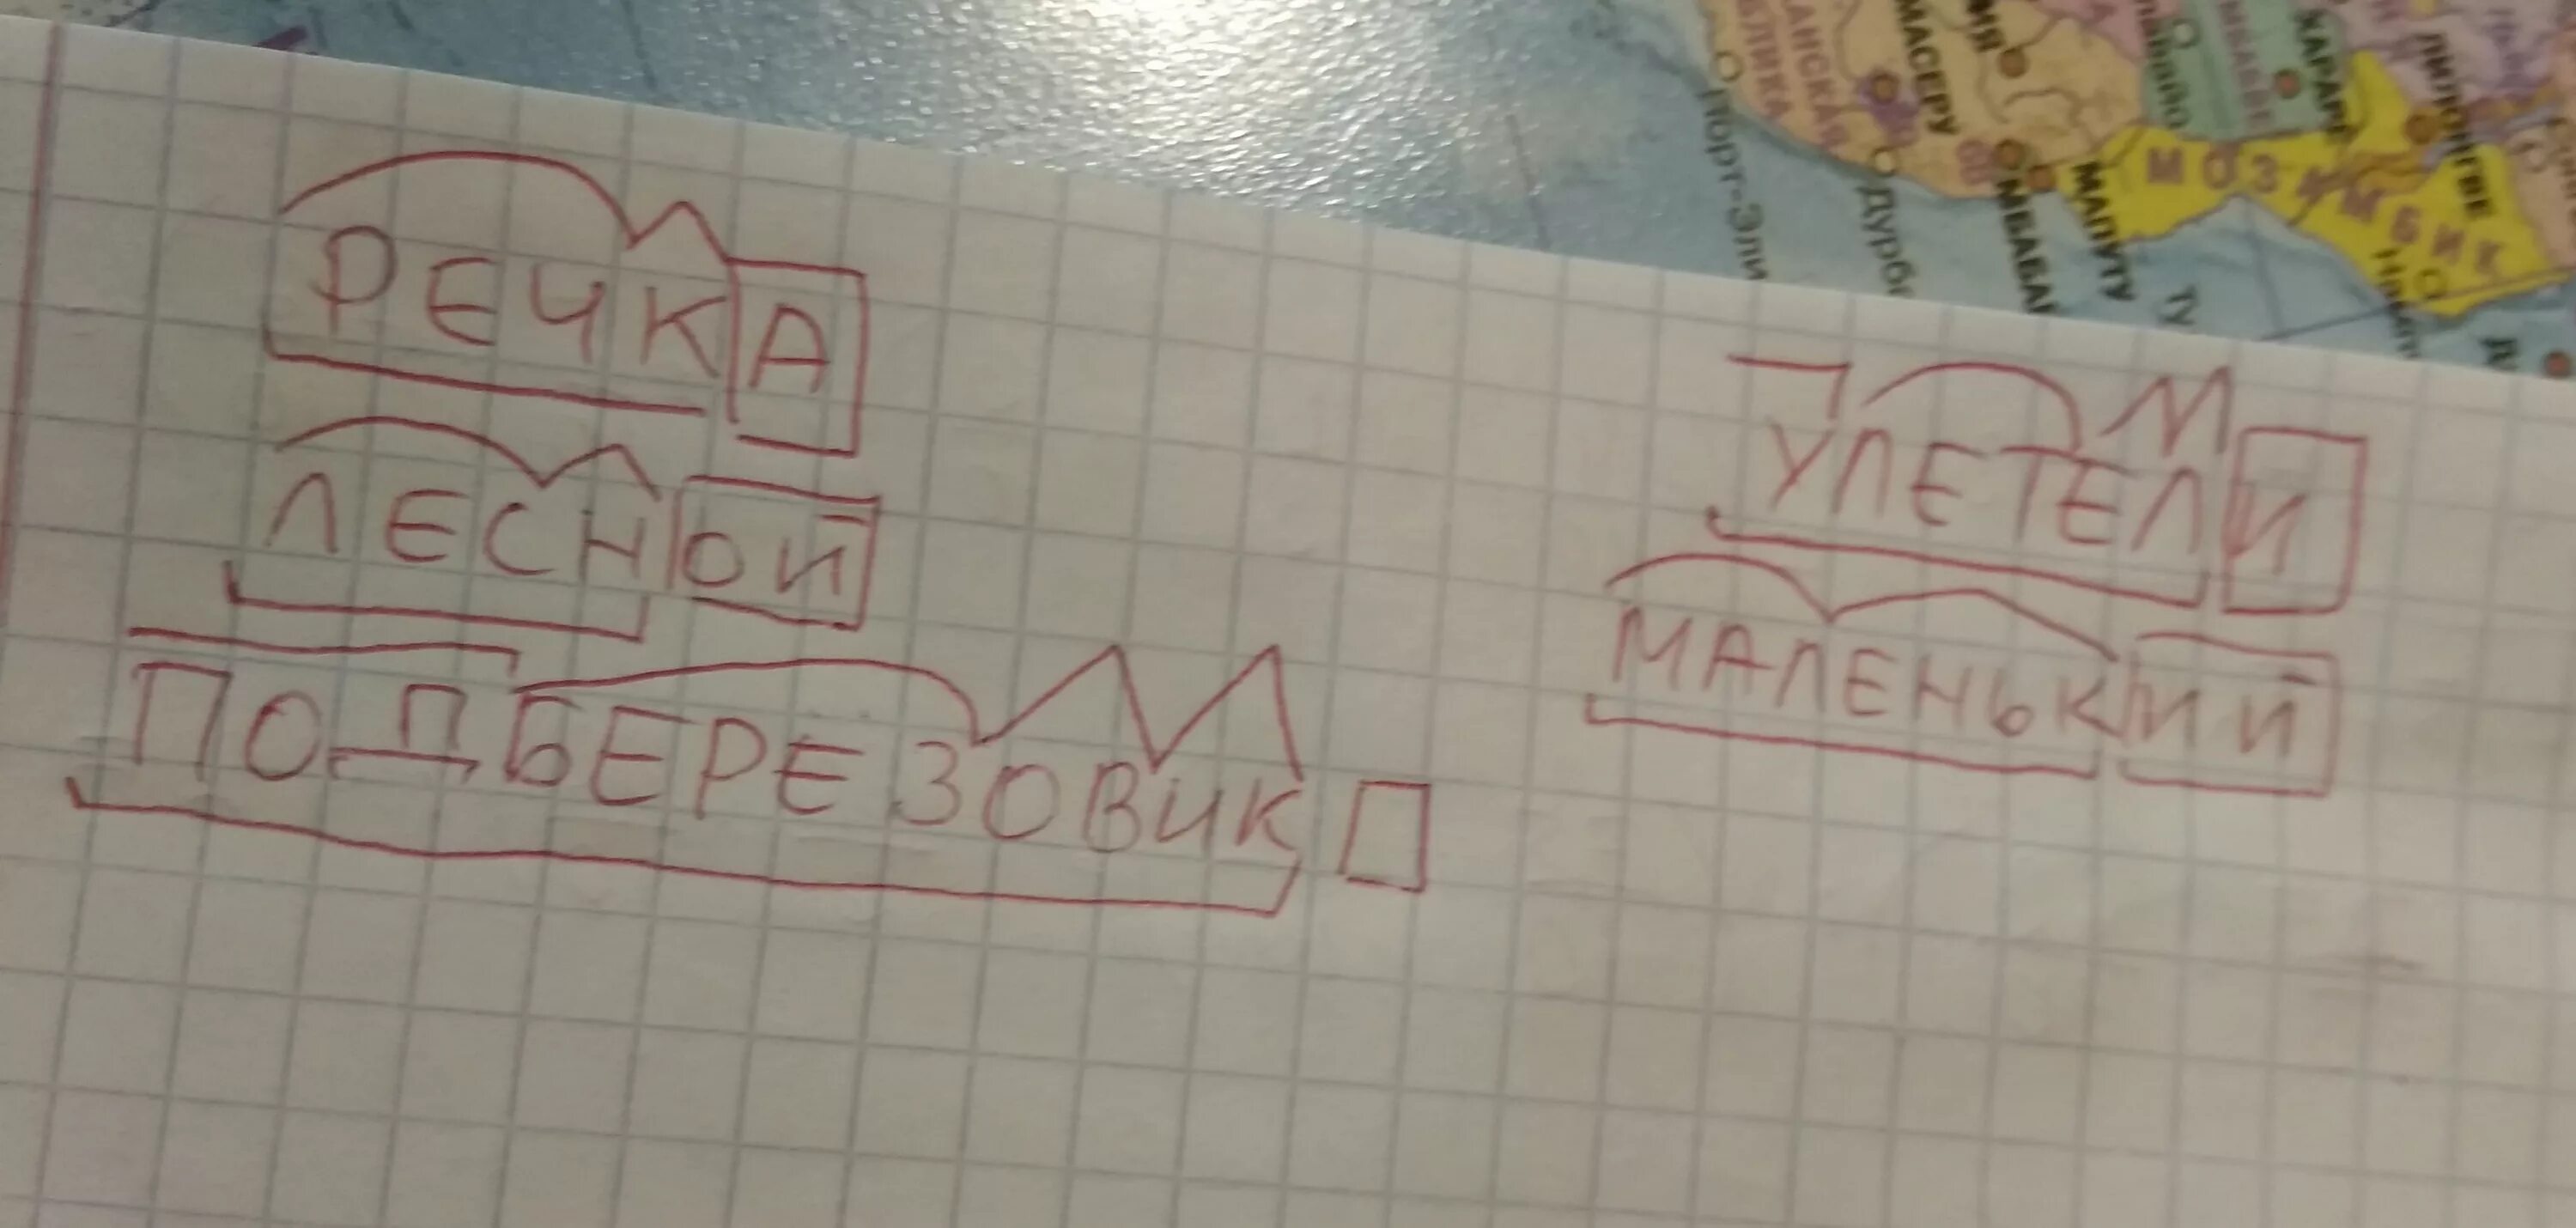 РЕЧКА
ЛЕСНОЙ
ПОДБЕРЕЗОВИК
УЛЕТЕЛИ
МАЛЕНЬКИЙ
МАСЕРУ
МАПУТУ
МОЗАМБИК
ХАРАРЕ
ЛИЛОНГВЕ
Порт-Эли
Дурба
МБАБА